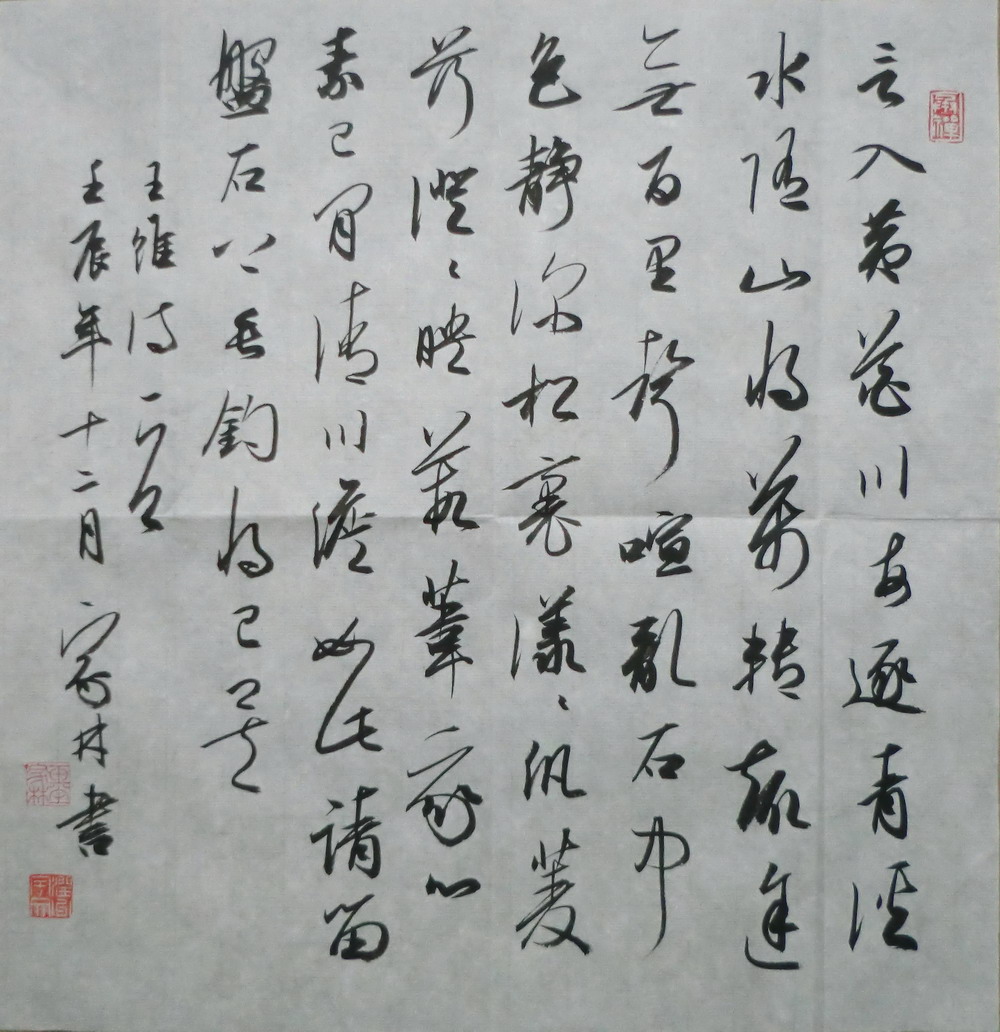 言入黄花川每逐青溪
水隨山將萬轉趣途
無百里聲喧亂石中
色静深松裏漾〻汎菱
荇澄〻映葭葦我心
素已閒清川澹如此請留
盤石上垂釣將已矣
王維詩一首
壬辰年十二月家林書